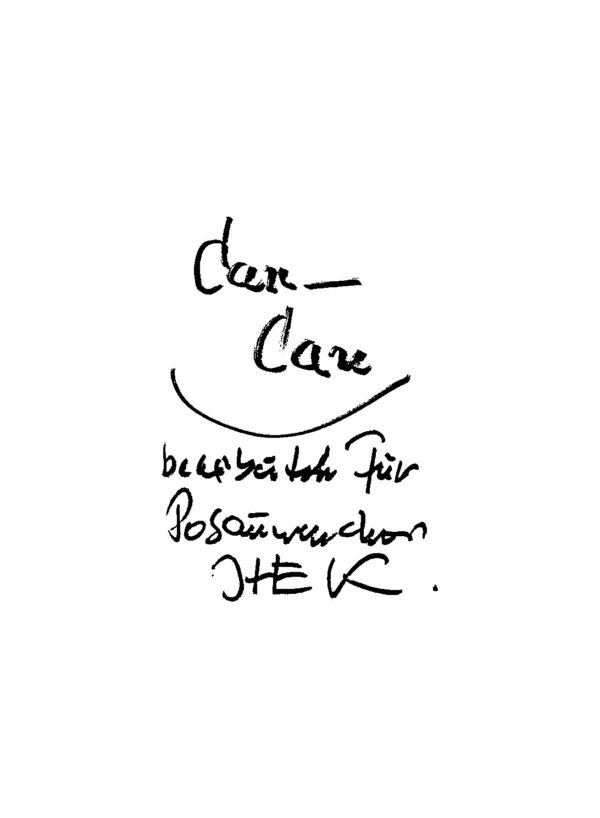 Can-
Can
bearbeitet für
Posaunenchor
HEK.